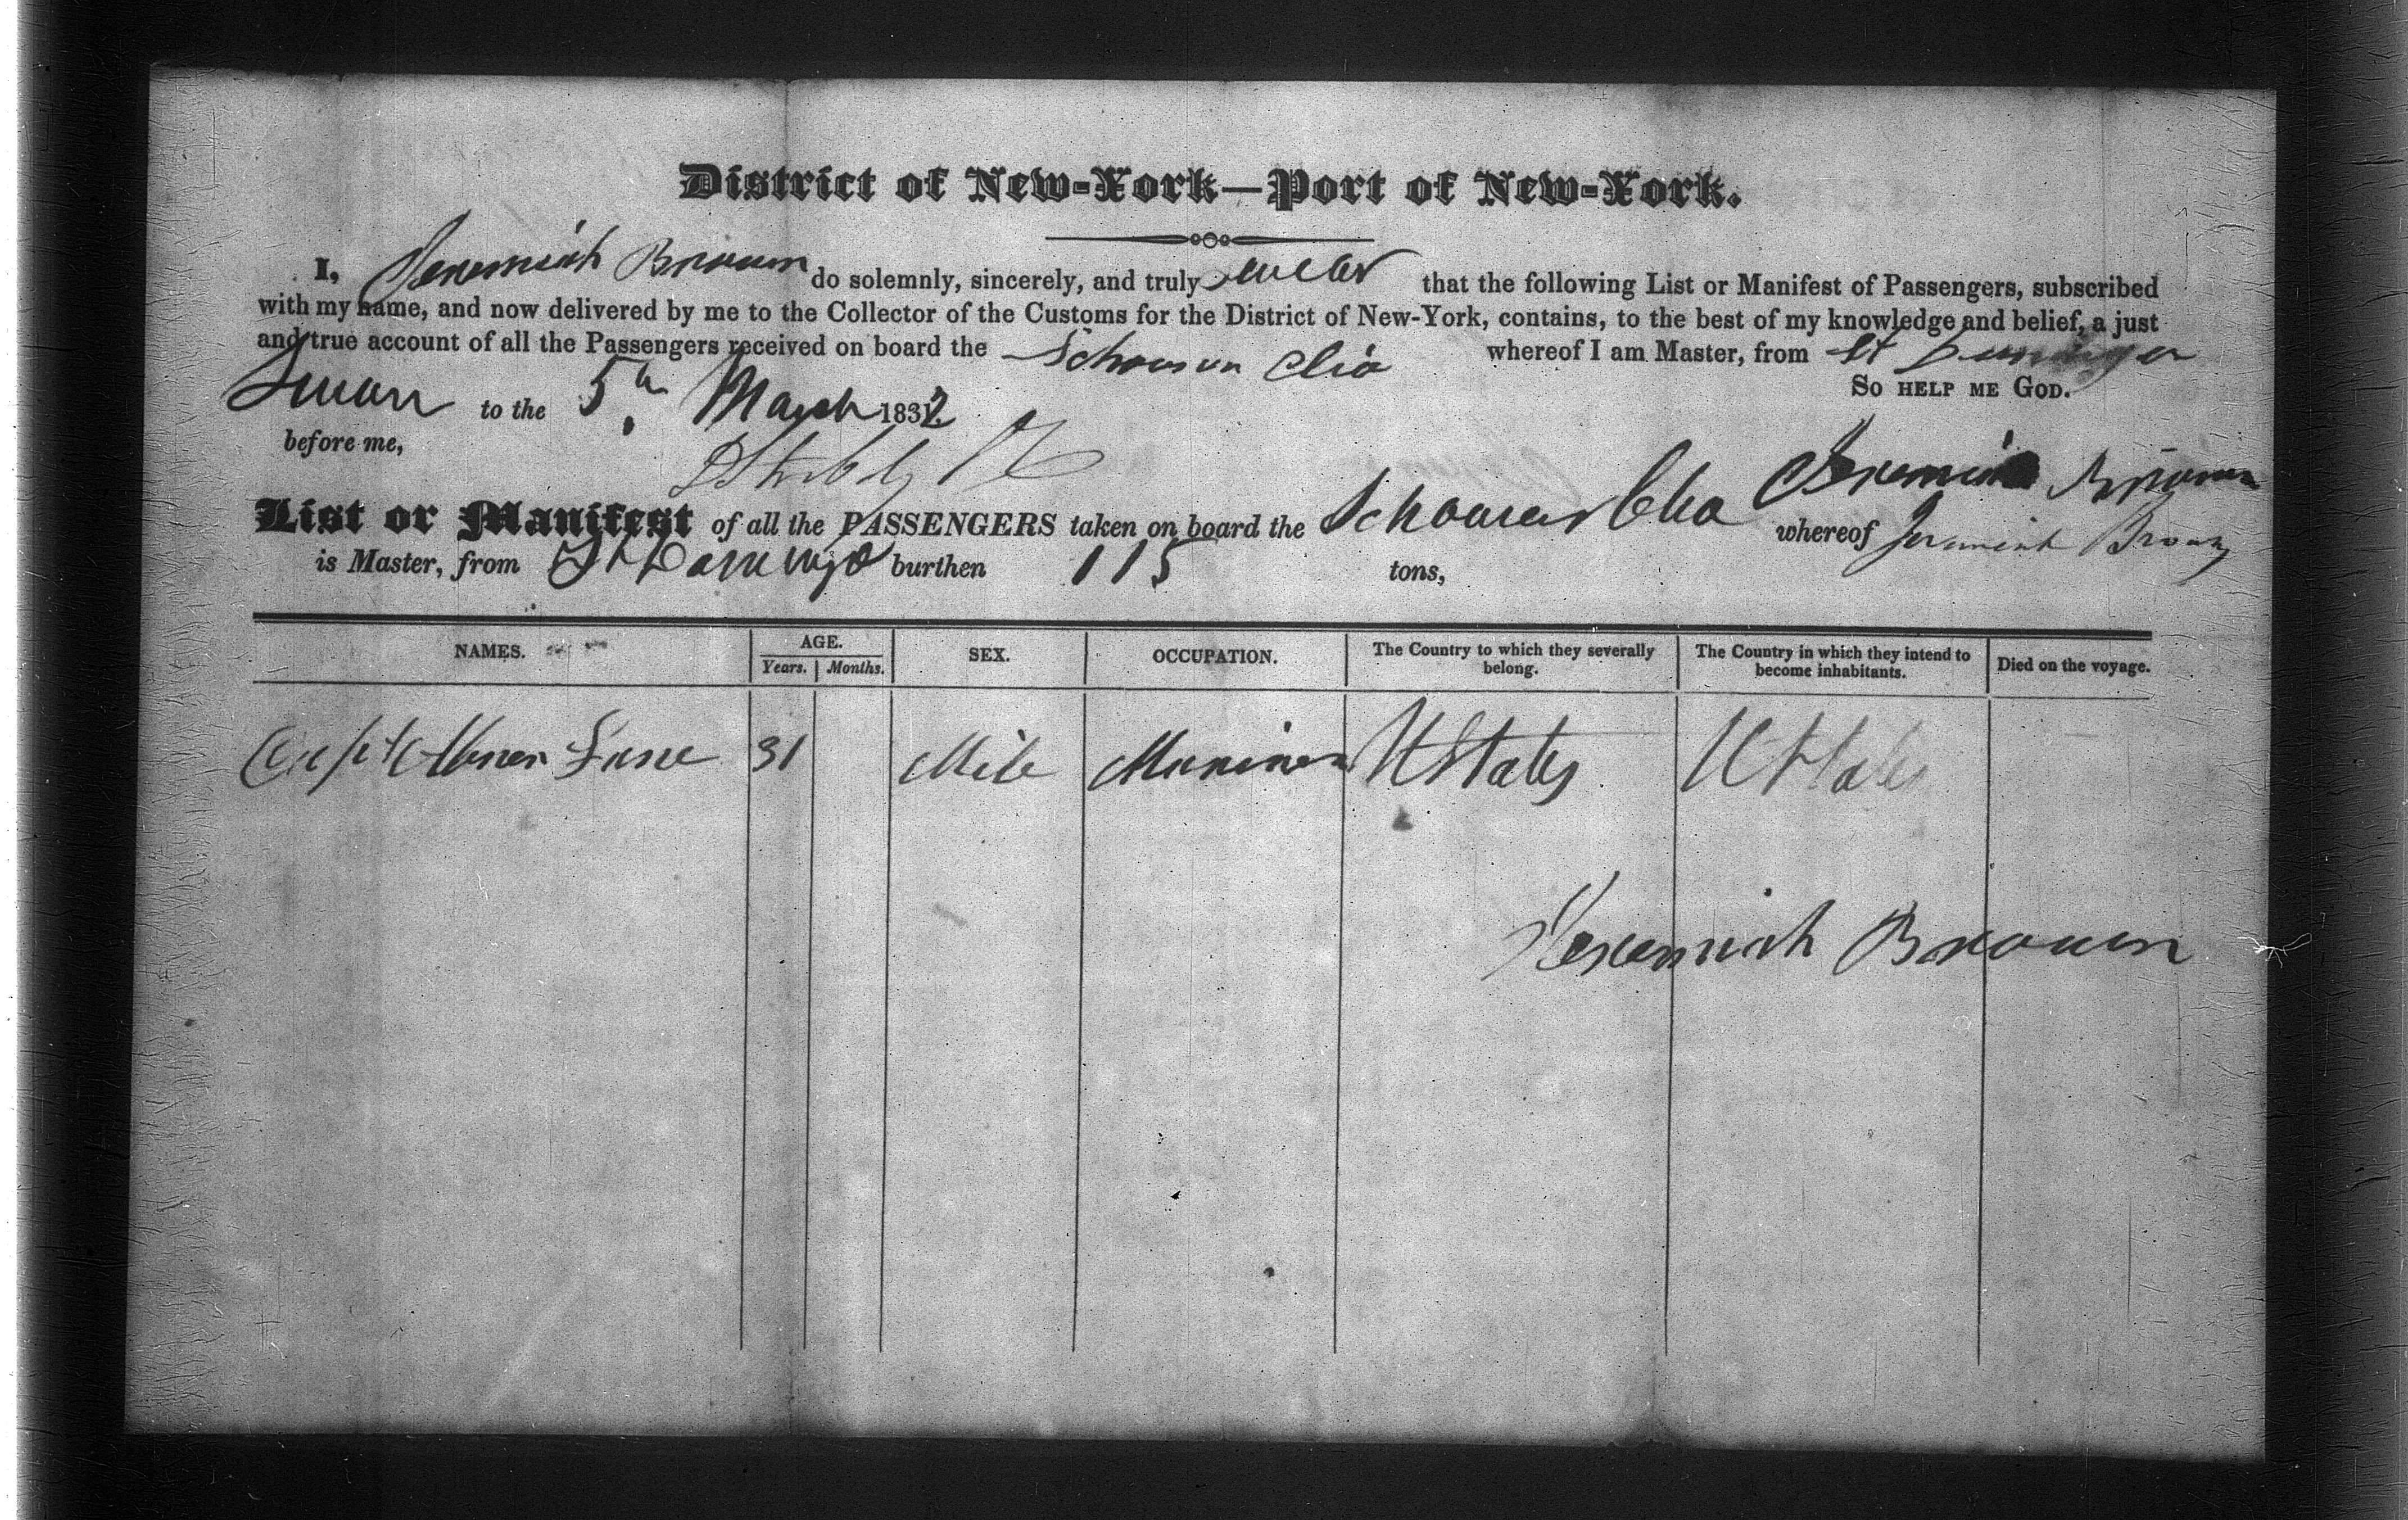 District of New-York—Port of New-York.
I, Jeremiah Brown do solemnly, sincerely, and truly swear that the following List or Manifest of Passengers, subscribed
with my name, and now delivered by me to the Collector of the Customs for the District of New-York, contains, to the best of my knowledge and belief, a just
and true account of all the Passengers received on board the Schooner Clio whereof I am Master, from St Domingo
So help me God.
Sworn to the 5th March 1832
before me,
Jeremiah Brown
List or Manifest of all the PASSENGERS taken on board the Schooner Clio whereof Jeremiah Brown
is Master, from St Domingo burthen 115 tons,
NAMES. AGE. SEX. OCCUPATION. The Country to which they severally belong. The Country in which they intend to become inhabitants. Died on the voyage.
Years. Months.
Capt Abner Lane 31 Male Mariner UStates UStates
Jeremiah Brown